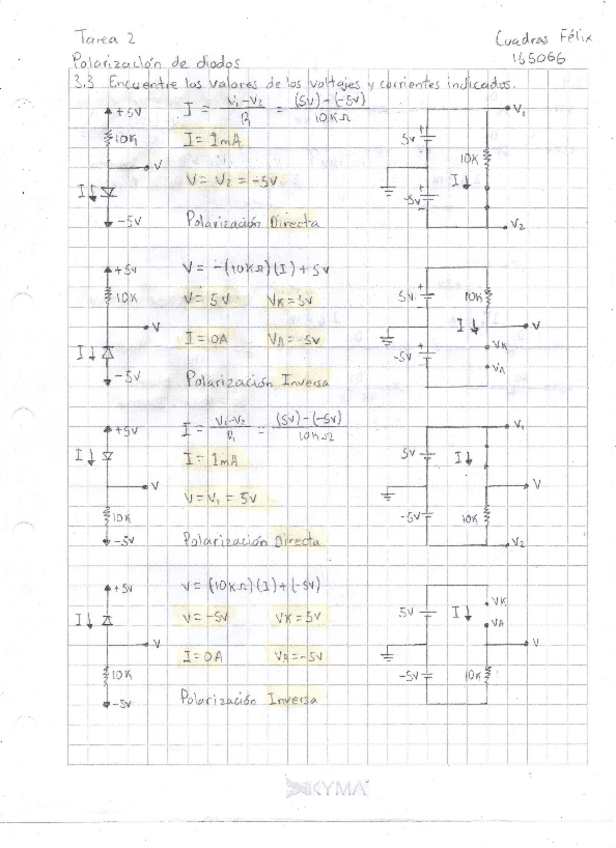 Tarea 2
Cuadras Félix
Polarización de diodos
165066
3.3 Encuentre los valores de los voltajes y corrientes indicados.
+5V
10K
V
I
-5V
I = V1-V2 / R = (5V)-(-5V) / 10KΩ
I = 1mA
V = V2 = -5V
Polarización Directa
V1
5V
10K
I
-5V
V2
+5V
10K
V
I
-5V
V = -(10KΩ)(I)+5V
V = 5V VK = 5V
I = 0A VA = -5V
Polarización Inversa
5V
10K
I
V
VK
-5V
VA
+5V
I
V
10K
-5V
(5V)-(-5V) / 10KΩ
I = 1mA
V = V1 = 5V
Polarización Directa
V1
5V
I
V
-5V
10K
V2
+5V
I
V
10K
-5V
V = (10KΩ)(I)+(-5V)
V = -5V VK = 5V
I = 0A VA = -5V
Polarización Inversa
VK
5V
I
VA
V
-5V
10K
KYMA